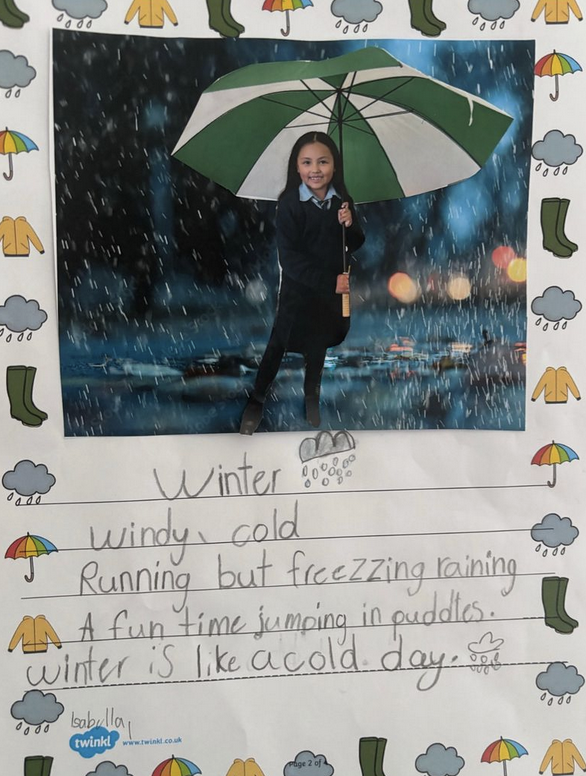 Winter
Windy, cold
Running but freezzing raining
A fun time jumping in puddles.
winter is like a cold day.
Isabella
twinkl www.twinkl.co.uk
Page 2 of